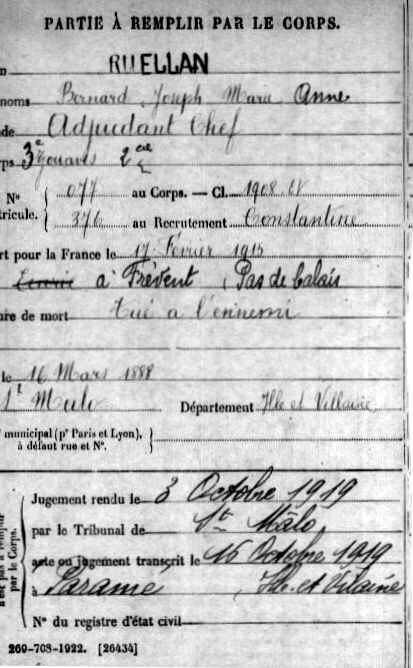 PARTIE À REMPLIR PAR LE CORPS.
RUELLAN
noms Bernard Joseph Marie Anne
de Adjudant Chef
ps 3e Zouaves
N° 077 au Corps. — Cl. 1908
tricule. 376 au Recrutement Constantine
rt pour la France le 17 Février 1915
a Frévent, Pas de Calais
re de mort Tué a l'ennemi
le 16 Mars 1888
St Malo Département Ille et Villaine
municipal (pr Paris et Lyon),
à défaut rue et N°.
Jugement rendu le 3 Octobre 1919
par le Tribunal de St Malo
acte ou jugement transcrit le 16 Octobre 1919
à Paramé, Ille et Vilaine
N° du registre d'état civil
par le Corps.
269-708-1922. [26434]